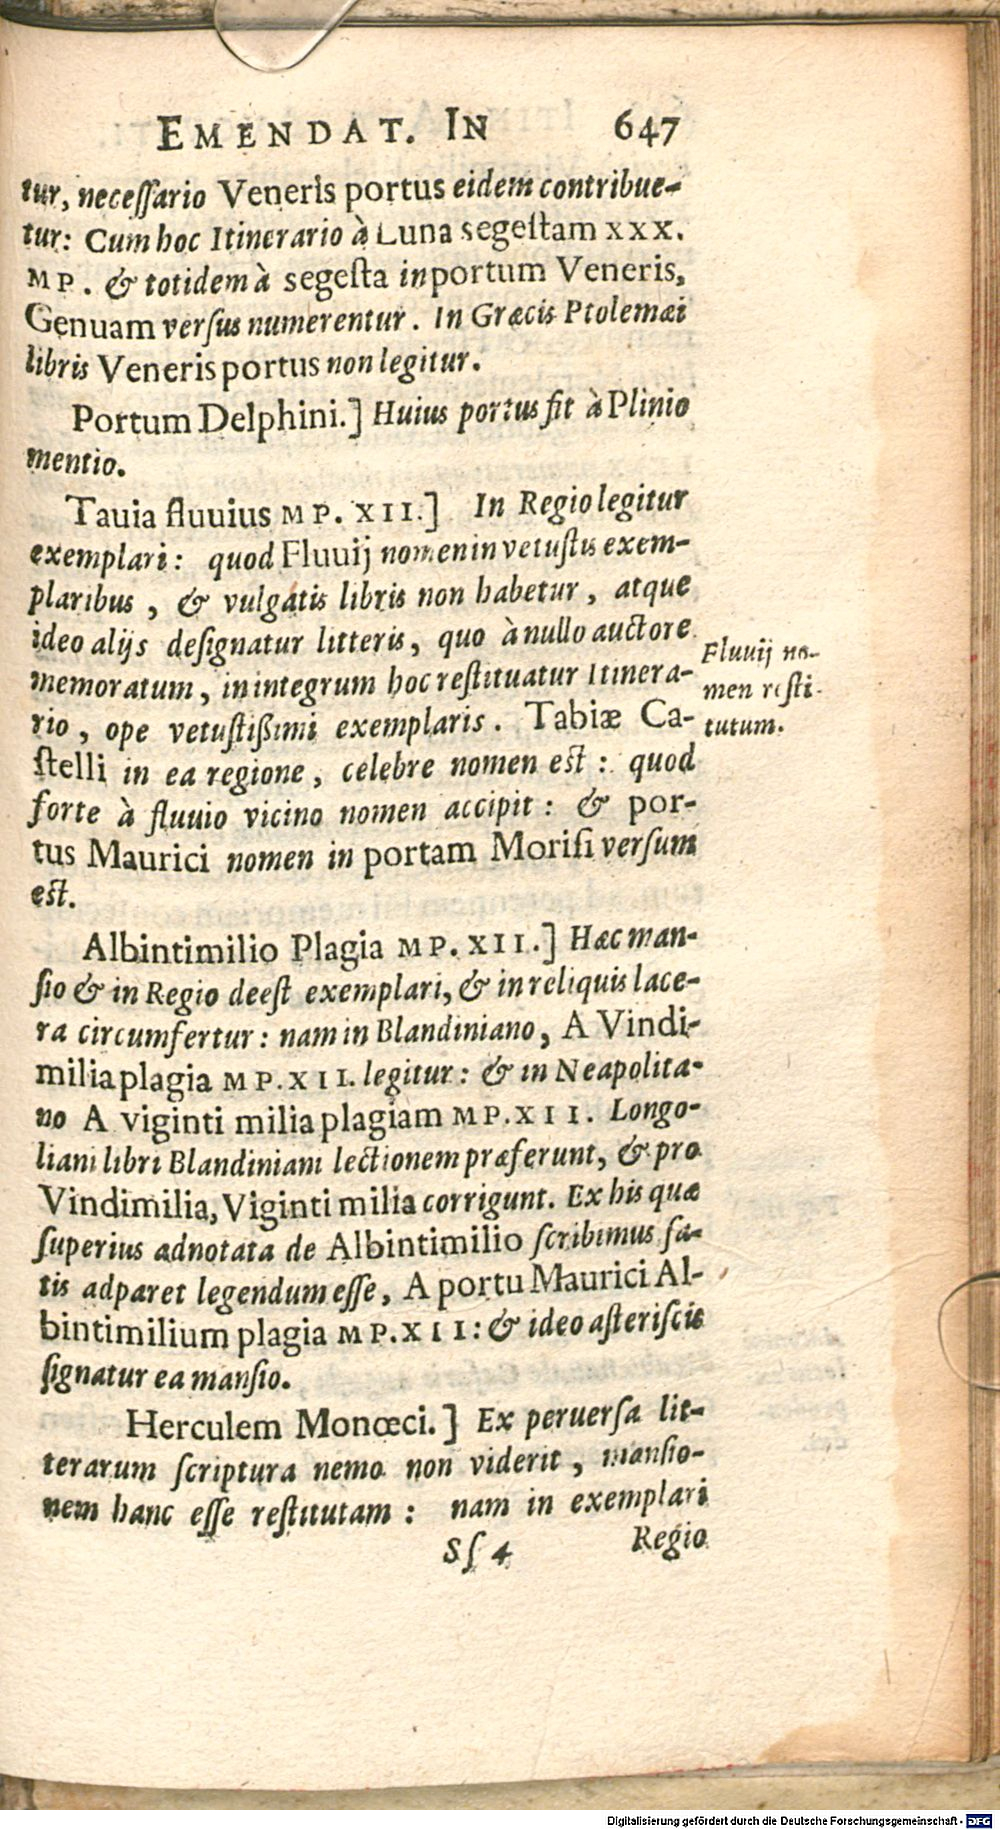 EMENDAT. IN 647
tur, neceſſario Veneris portus eidem contribue-
tur: Cum hoc Itinerario à Luna segeſtam XXX.
MP. & totidem à segeſta in portum Veneris,
Genuam verſus numerentur. In Græcis Ptolemæi
libris Veneris portus non legitur.
Portum Delphini.] Huius portus fit à Plinio
mentio.
Tauia fluuius MP. XII.] In Regio legitur
exemplari: quod Fluuij nomen in vetuſtis exem-
plaribus, & vulgatis libris non habetur, atque
ideo alijs deſignatur litteris, quo à nullo auctore
memoratum, in integrum hoc reſtituatur Itinera-
rio, ope vetuſtißimi exemplaris. Tabiæ Ca-
ſtelli in ea regione, celebre nomen eſt: quod
forte à fluuio vicino nomen accipit: & por-
tus Maurici nomen in portam Moriſi verſum
eſt.
Fluuij no-
men reſti-
tutum.
Albintimilio Plagia MP. XII.] Hæc man-
ſio & in Regio deeſt exemplari, & in reliquis lace-
ra circumfertur: nam in Blandiniano, A Vindi-
milia plagia MP. XII. legitur: & in Neapolita-
no A viginti milia plagiam MP. XII. Longo-
liani libri Blandiniani lectionem præferunt, & pro
Vindimilia, Viginti milia corrigunt. Ex his quæ
ſuperius adnotata de Albintimilio ſcribimus ſa-
tis adparet legendum eſſe, A portu Maurici Al-
bintimilium plagia MP. XII: & ideo aſteriſcis
ſignatur ea manſio.
Herculem Monœci.] Ex peruerſa lit-
terarum ſcriptura nemo non viderit, manſio-
nem hanc eſſe reſtitutam: nam in exemplari
Sſ 4 Regio
Digitalisierung gefördert durch die Deutsche Forschungsgemeinschaft - DFG